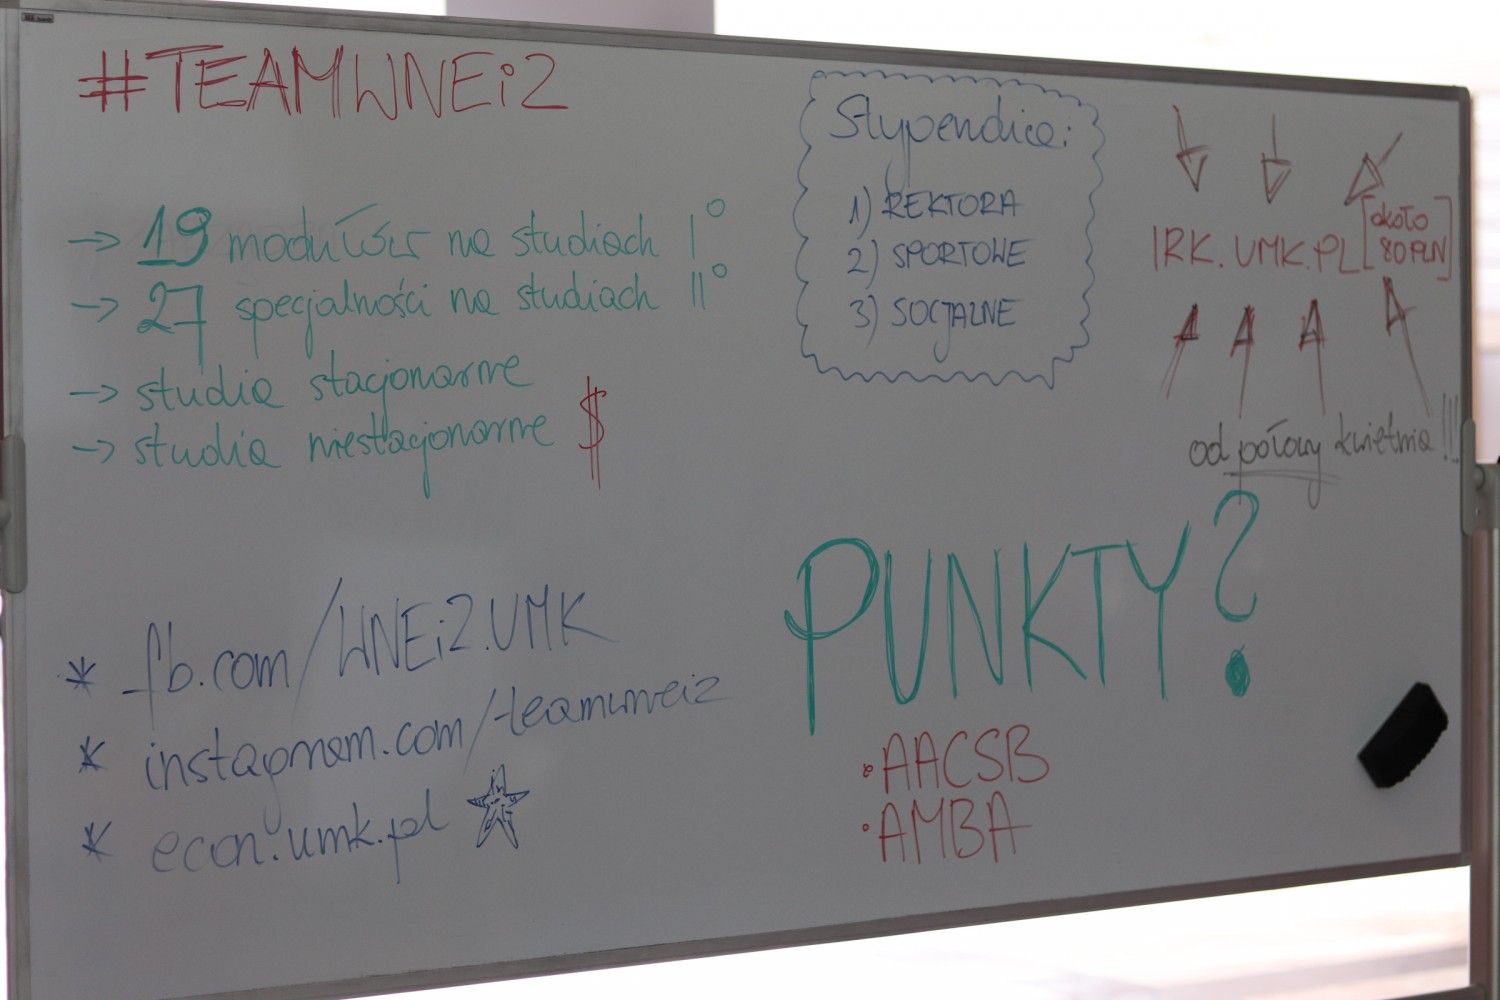 #TEAMWNEiZ
→ 19 modułów na studiach I°
→ 27 specjalności na studiach II°
→ studia stacjonarne
→ studia niestacjonarne $
* fb.com/WNEiZ.UMK
* instagram.com/teamwneiz
* econ.umk.pl
Stypendia:
1) REKTORA
2) SPORTOWE
3) SOCJALNE
IRK.UMK.PL [około 80 PLN]
od połowy kwietnia!!!
PUNKTY?
• AACSB
• AMBA